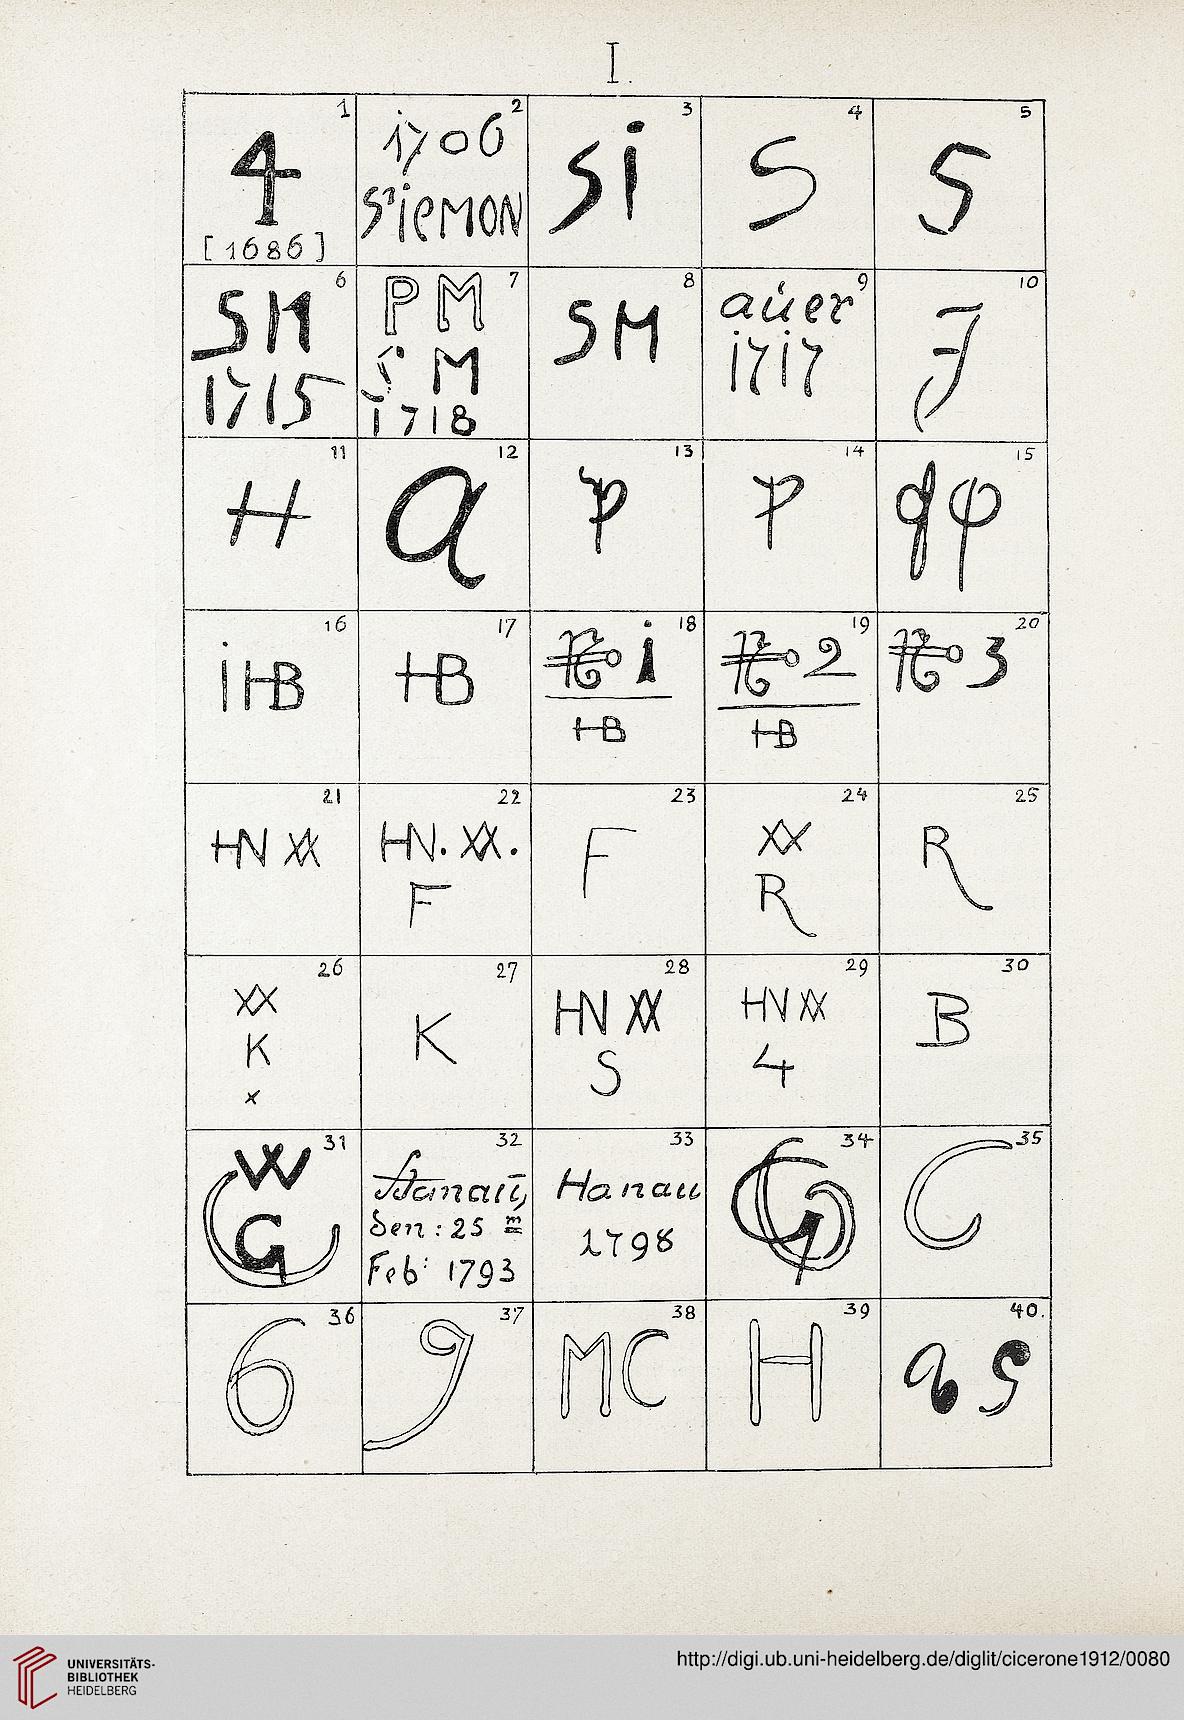 I.
1
4
[1686]
2
1706
SiemON
3
Si
4
S
5
S
6
SM
1715
7
PM
S M
1718
8
SM
9
aúer
1717
10
J
11
H
12
a
13
p
14
p
15
φφ
16
iHB
17
HB
18
No 1
HB
19
No 2
HB
20
No 3
21
HN XX
22
HN. XX.
F
23
F
24
XX
R
25
R
26
XX
K
x
27
K
28
HN XX
S
29
HN XX
4
30
B
31
W
G
32
Hanau,
den: 25 m
Feb: 1793
33
Hanau
1798
34
G
35
C
36
6
37
9
38
MC
39
H
40.
UNIVERSITÄTS-
BIBLIOTHEK
HEIDELBERG
http://digi.ub.uni-heidelberg.de/diglit/cicerone1912/0080